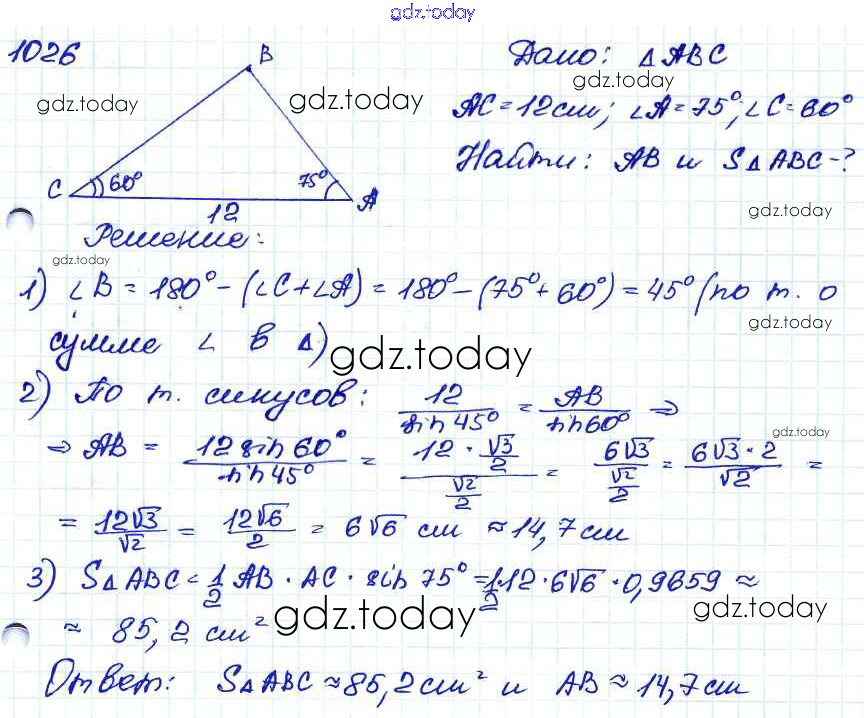 gdz.today
1026
B
Дано: △ABC
gdz.today
gdz.today
gdz.today
AC = 12см; ∠A = 75°; ∠C = 60°
Найти: AB и S△ABC-?
C 60° 75° A
12
gdz.today
Решение:
gdz.today
1) ∠B = 180° - (∠C + ∠A) = 180° - (75° + 60°) = 45° (по т. о
gdz.today
сумме ∠ в △)
gdz.today
2) По т. синусов: 12/sin45° = AB/sin60° ⇒
gdz.today
⇒ AB = 12 sin 60°/sin 45° = (12 · √3/2)/(√2/2) = 6√3/(√2/2) = 6√3 · 2/√2 =
= 12√3/√2 = 12√6/2 = 6√6 см ≈ 14,7см
3) S△ABC = 1/2 AB · AC · sin 75° = 1/2 · 12 · 6√6 · 0,9659 ≈
gdz.today
≈ 85,2 см²
gdz.today
Ответ: S△ABC ≈ 85,2см² и AB ≈ 14,7см